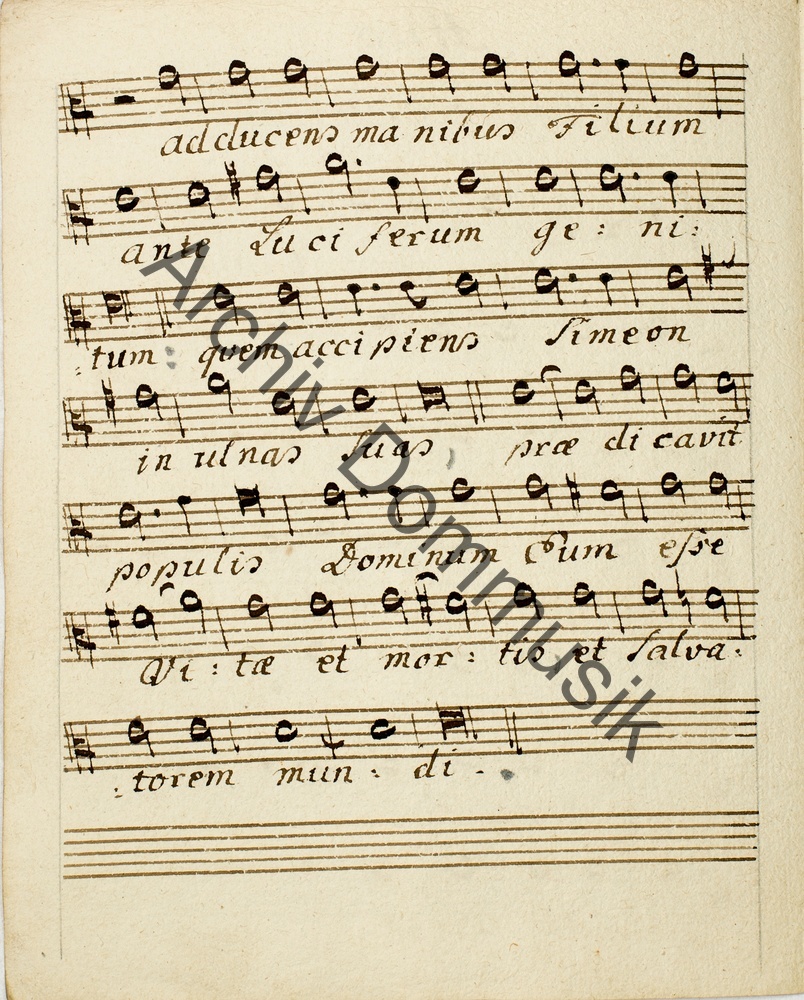 adducens manibus Filium
ante Luciferum ge: ni:
:tum: quem accipiens Simeon
in ulnas suas, præ dicavit
populis Dominum Eum esse
Vi: tæ et mor: tis et Salva:
:torem mun: di.
Archiv Dommusik